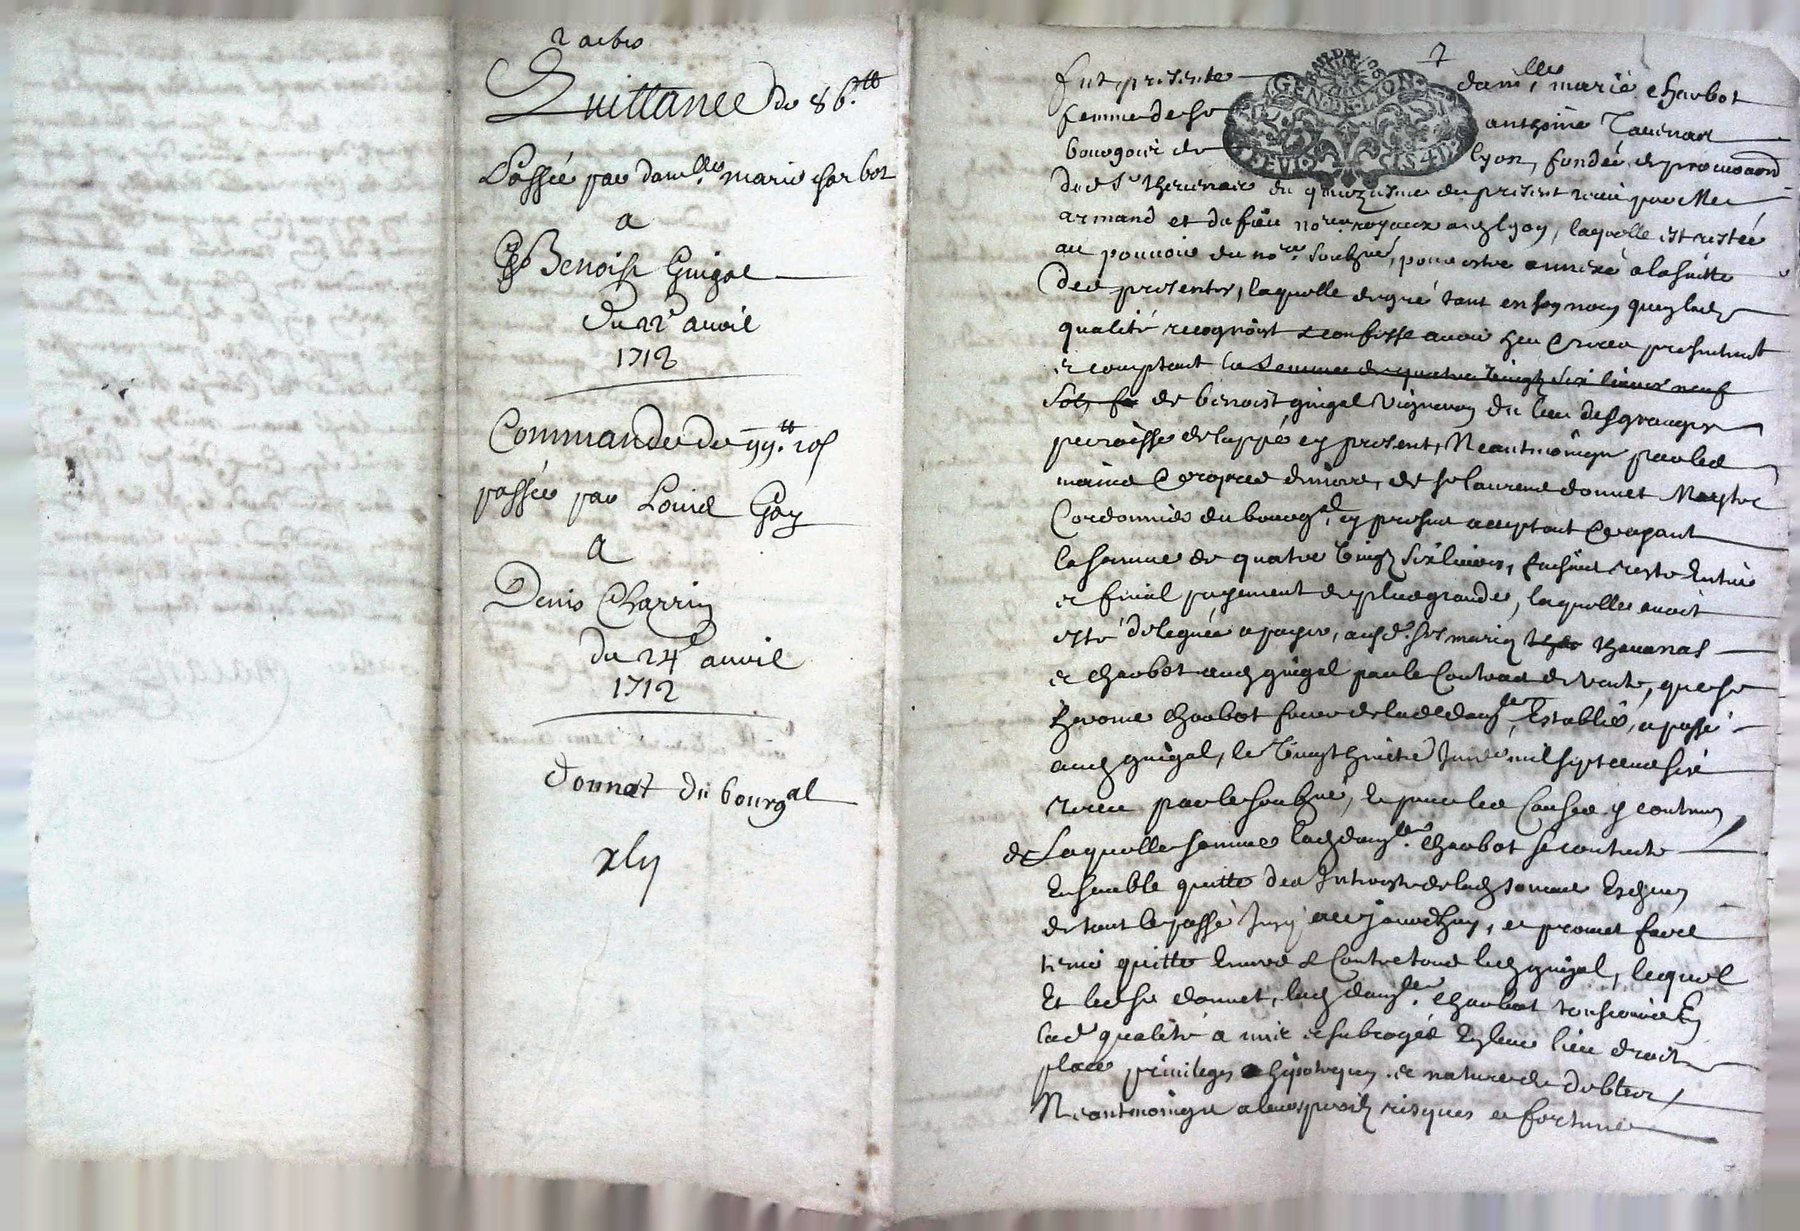 2 actes
Quittance de 86.tt
Passée par damlle marie charbot
a
Benoist Guigal
Du 22e avvil
1712
Commande de 99.tt 10s
passée par Louis Gay
a
Denis Charrin
du 24e avvil
1712
Donnet du bourgal
xly
Fut presente damlle marie charbot
femme de sr anthoine
bourgois de lyon, fondée de procuraon
dud sr du quinziesme du present receu par Mes
armand et dufieu nores royaux aud lyon, laquelle est restée
au pouvoir du nore soubzné, pour estre annexé a la suitte
des presentes, laquelle de gré tant en son nom qu'en lad
qualité recognoist & confesse avoir heu & receu presentement
et comptant la somme de quatre vingt six livres neuf
sols de benoist guigal vigneron du lieu des granges
parroisse de luppé cy present, Neantmoings par les
mains & propres deniers, de sr laurent donnet Maystre
Cordonnier du bourgal, cy present acceptant & payant
la somme de quatre vingt six livres, faisant reste entier
et final payement de plus grande, laquelle avoit
esté deleguée a payer, ausd. sr mariez thevenas
et charbot aud guigal par le Contract de vente, que sr
hierome charbot frere de lade damlle establie, a passé
aud guigal, le vingt huite mil sept cens six
receu par le soubzné, & pour les causes y contenues
de Laquelle somme lad damlle. charbot se contente
Ensemble quitte des Interests de lad somme Escheus
de tout le passé jusq' a ce jourdhuy, et promet faire
tenir quitte Envers & Contre tous led guigal, lequel
Et led sr donnet, lad damlle. charbot En
lad qualité a mis et subrogés En leur lieu droit
place privileges & hipoteques et nature de debteur
Neantmoings a leurs perilz risques et fortunes